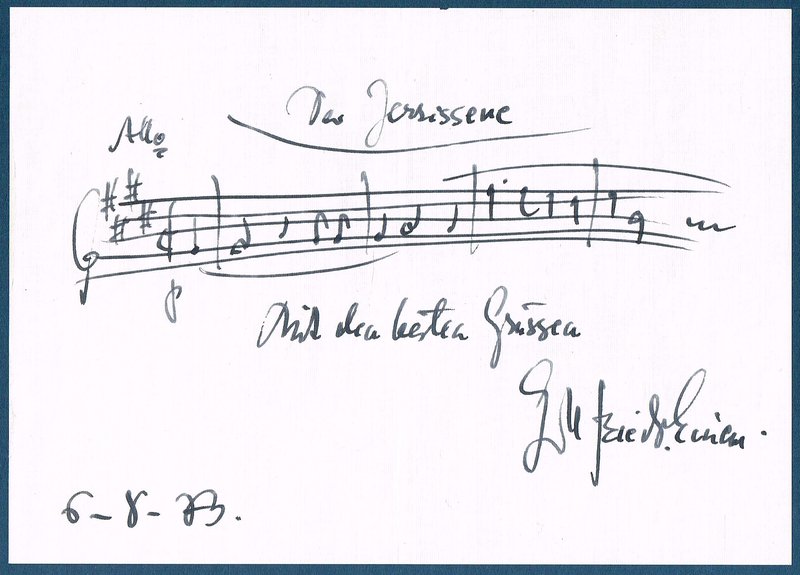 Der Zerrissene
Allo
p
Mit den besten Grüssen
Gottfried v. Einem.
6-8-73.